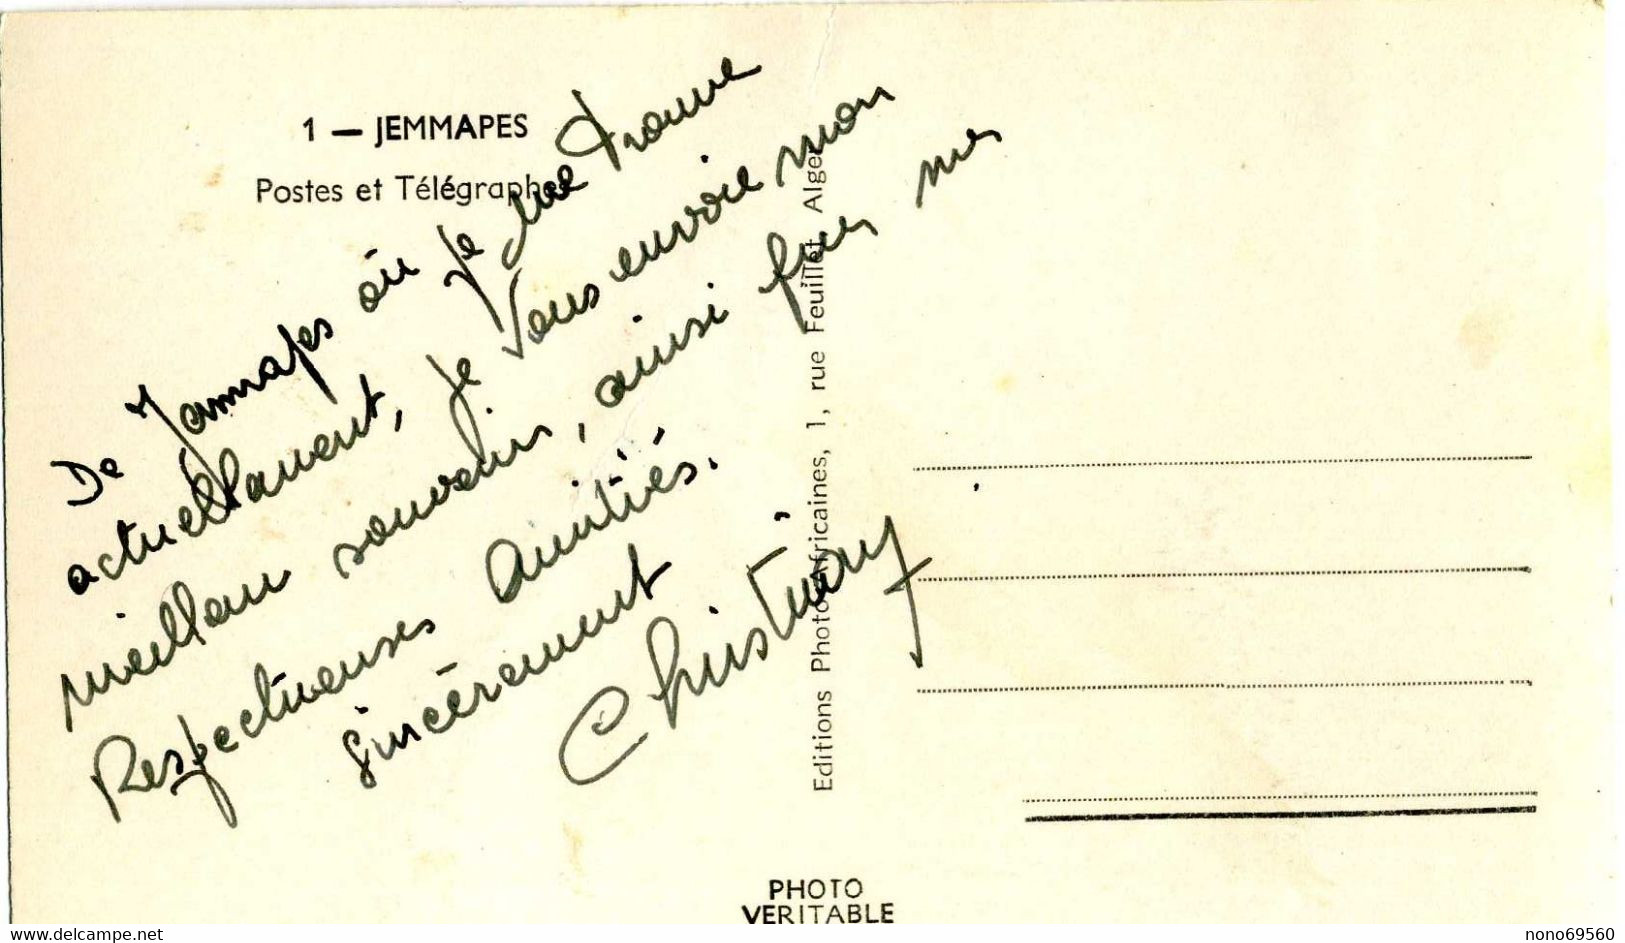 1 — JEMMAPES
Postes et Télégraphes
De Jemmapes où je me trouve
actuellement, je vous envoie mon
meilleur souvenir, ainsi que mes
Respectueuses Amitiés.
Sincèrement
Editions Photo-Africaines, 1, rue Feuillet, Alger
PHOTO
VERITABLE
www.delcampe.net
nono69560